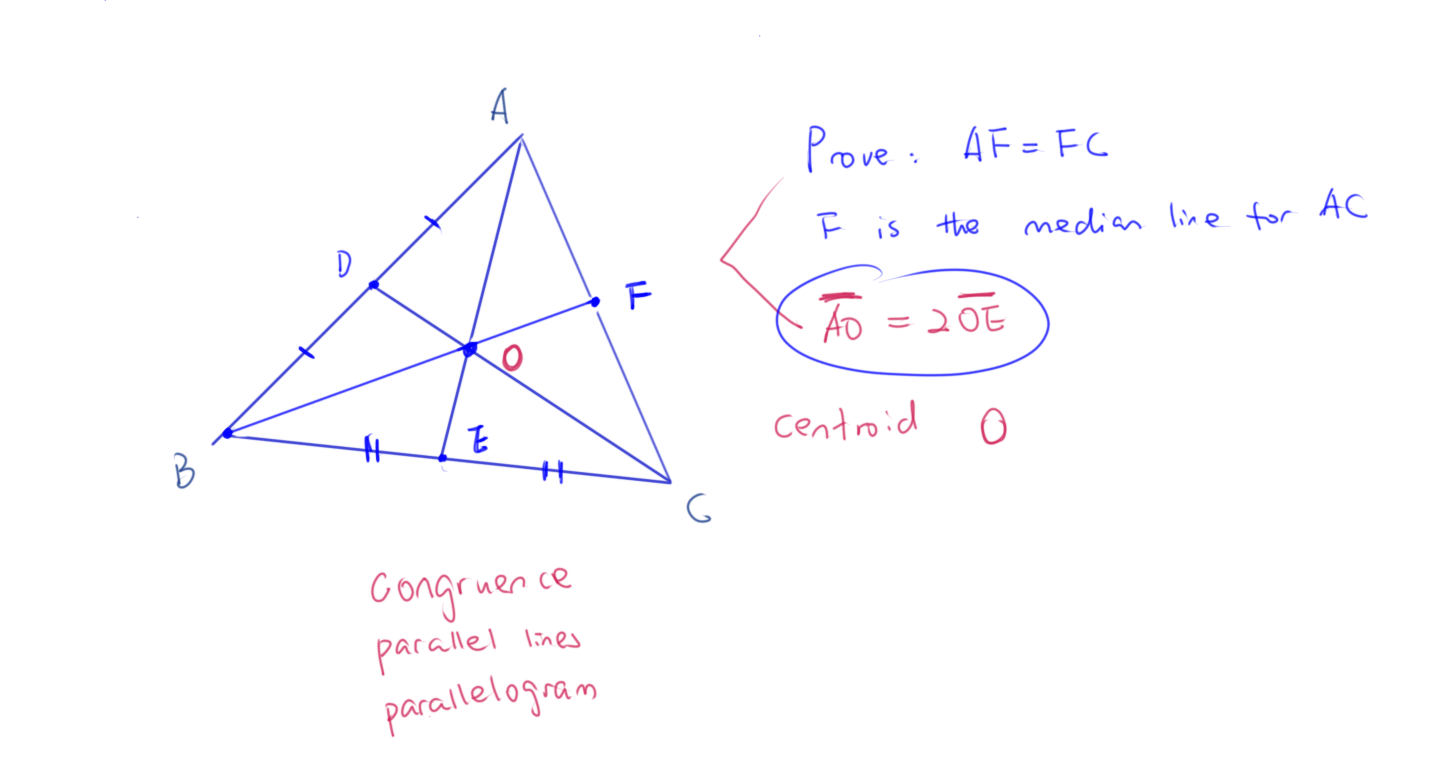 A
Prove: AF = FC
F is the median line for AC
D
F
AO = 2OE
O
centroid O
E
B
C
Congruence
parallel lines
parallelogram